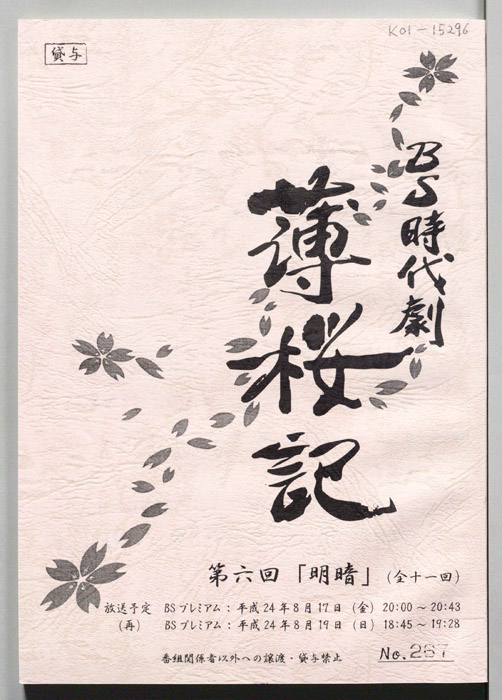 K01-15296
貸与
BS時代劇
薄桜記
第六回「明暗」(全十一回)
放送予定 BSプレミアム：平成24年8月17日(金)20:00～20:43
(再) BSプレミアム：平成24年8月19日(日)18:45～19:28
番組関係者以外への譲渡・貸与禁止
No.287